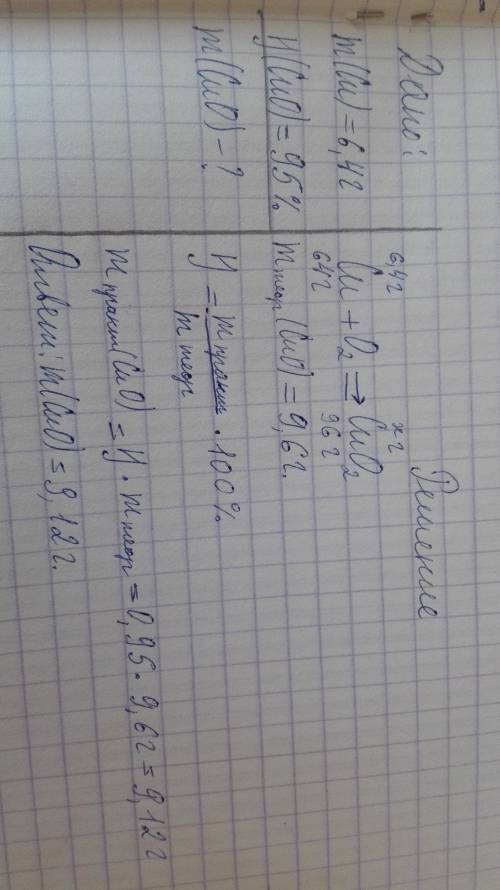 Дано:
m(Cu) = 6,4г
η(CuO) = 95%
m(CuO) - ?
Решение
6,4г хг
Cu + O₂ ⇒ CuO₂
64г 96г
m теор (CuO) = 9,6г.
η = m практ / m теор · 100%
m практ (CuO) = η · m теор = 0,95 · 9,6г = 9,12г
Ответ: m(CuO) = 9,12г.